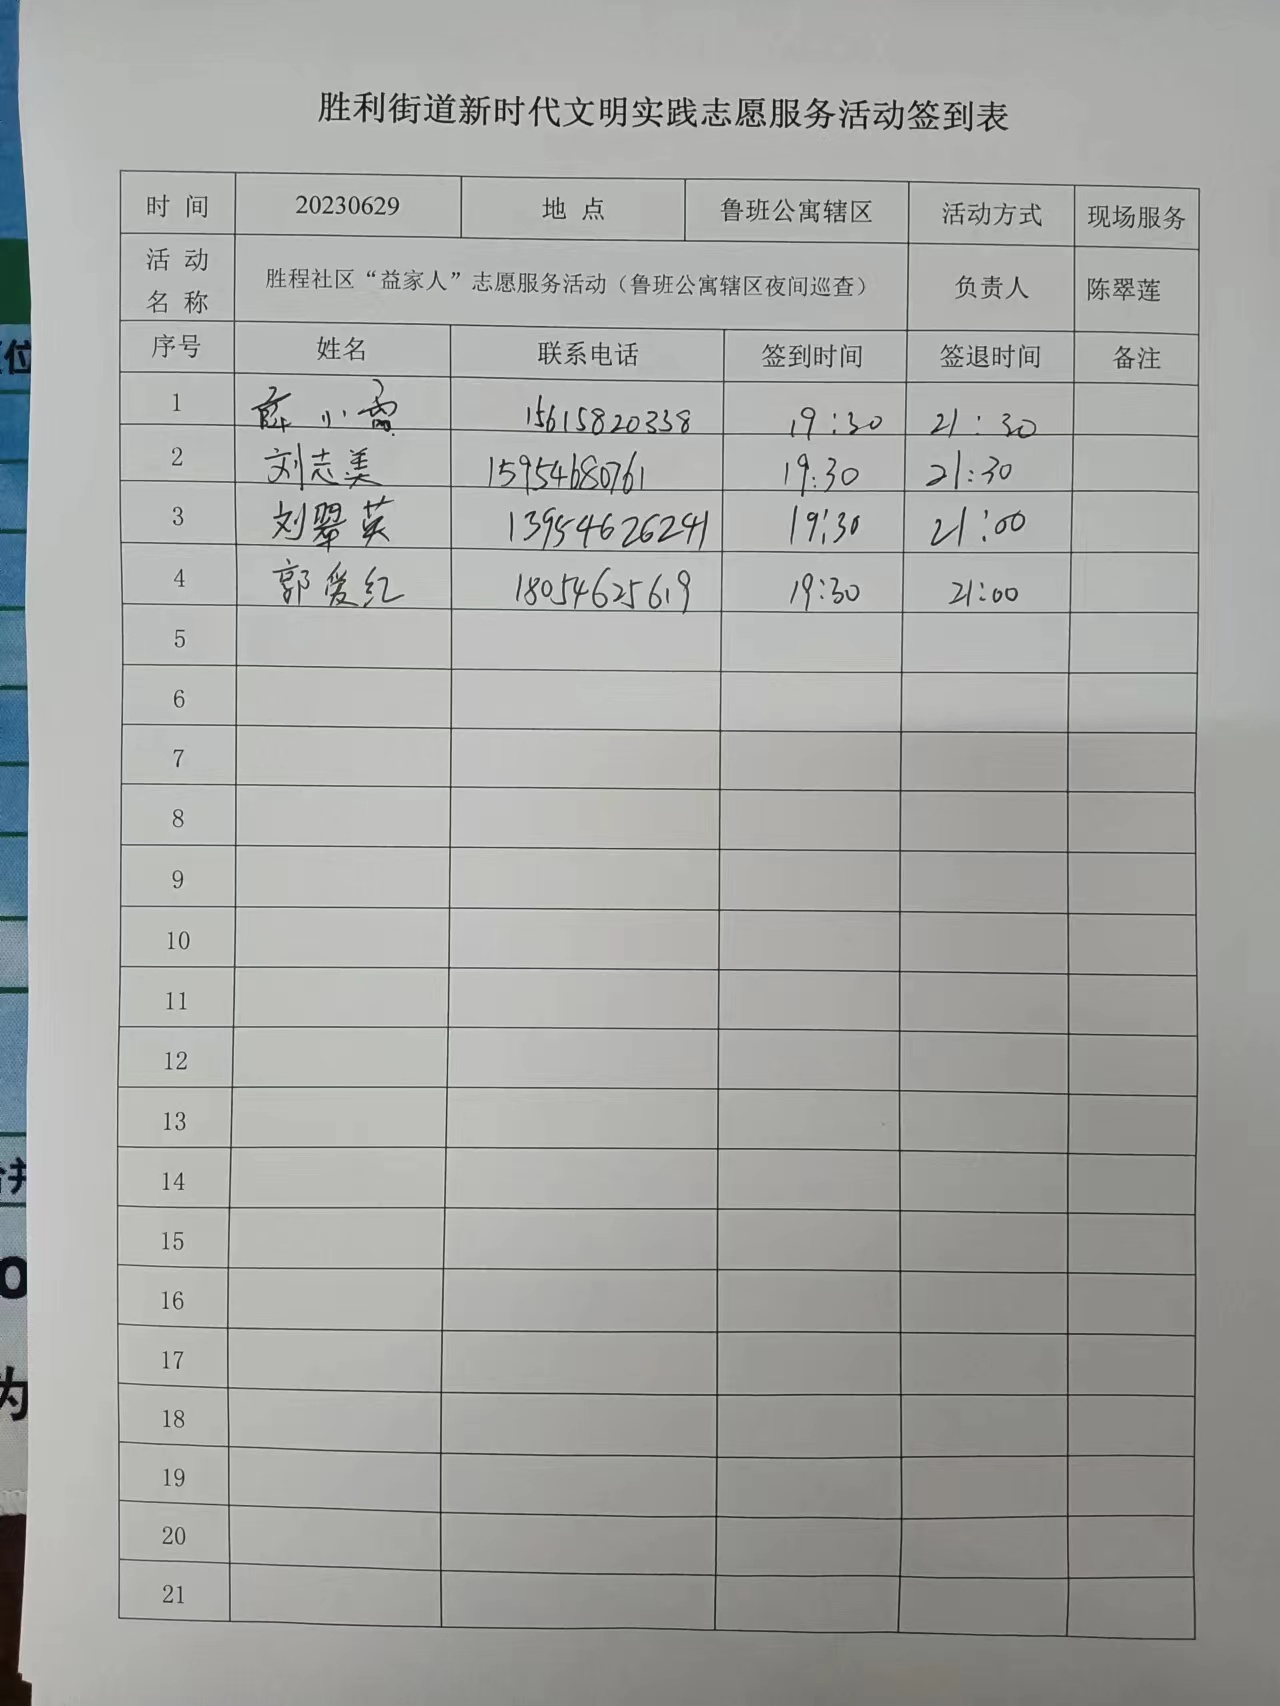 胜利街道新时代文明实践志愿服务活动签到表
时 间 20230629 地 点 鲁班公寓辖区 活动方式 现场服务
活 动 名 称 胜程社区“益家人”志愿服务活动（鲁班公寓辖区夜间巡查） 负责人 陈翠莲
序号 姓名 联系电话 签到时间 签退时间 备注
1 薛小雷 15615820338 19:30 21:30
2 刘志美 15954680761 19:30 21:30
3 刘翠英 13954626241 19:30 21:00
4 郭爱红 18054625619 19:30 21:00
5
6
7
8
9
10
11
12
13
14
15
16
17
18
19
20
21
位
为